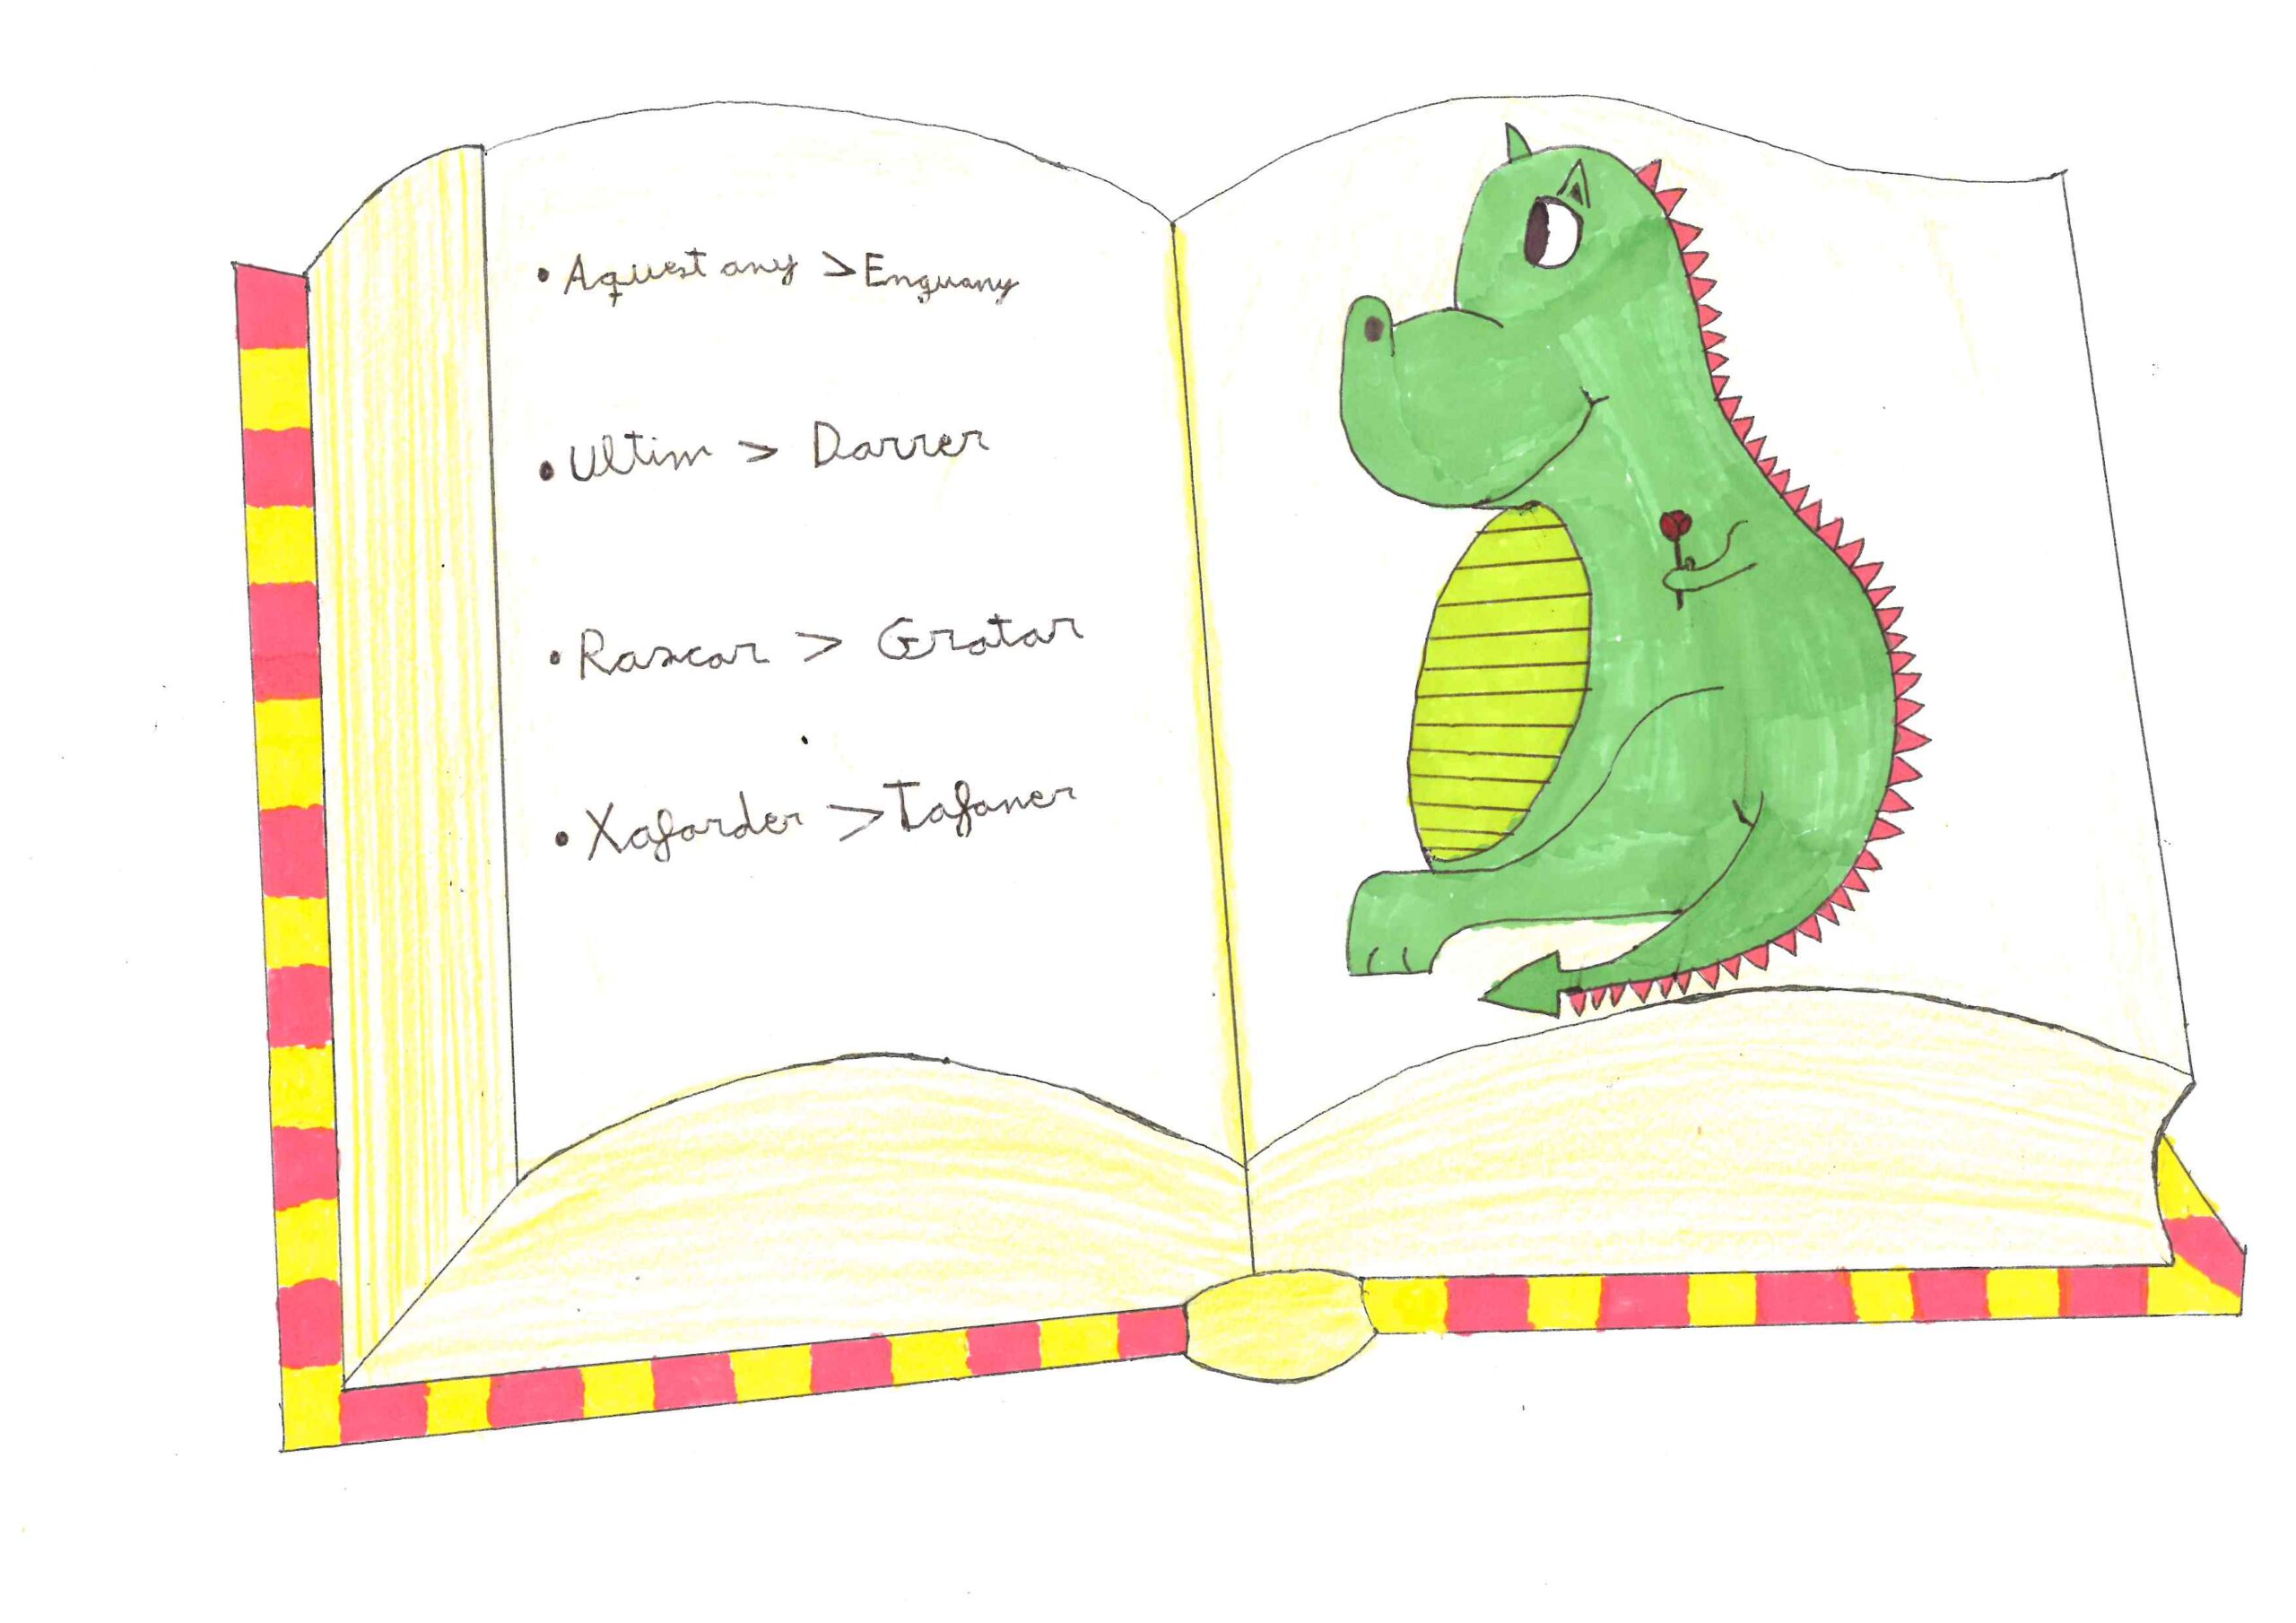 • Aquest any > Enguany
• Ultim > Darrer
• Rascar > Gratar
• Xafarder > Tafaner